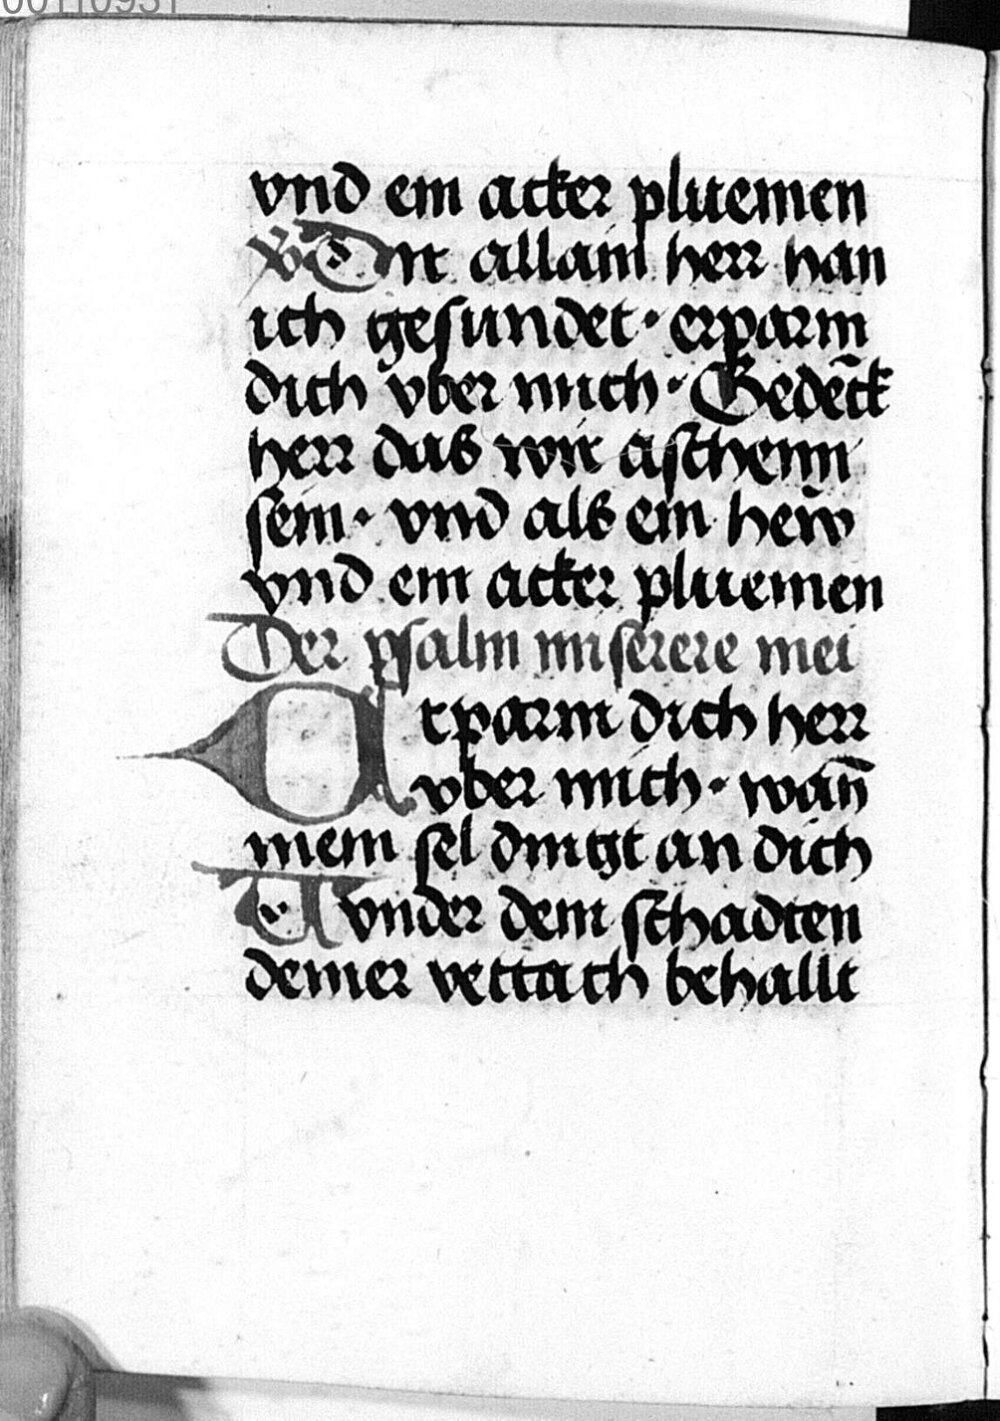 00110931
vnd ein acker pluemen
V Dir allain herr han
ich gesundet · erparm
dich vber mich · Gedēck
herr das wir aschenn
sein · vnd als ein heẅ
vnd ein acker pluemen
Der psalm miserere mei
Orparm dich herr
vber mich · wan̄
mein sel dingt an dich
Vnder dem schadten
deiner vettach behallt